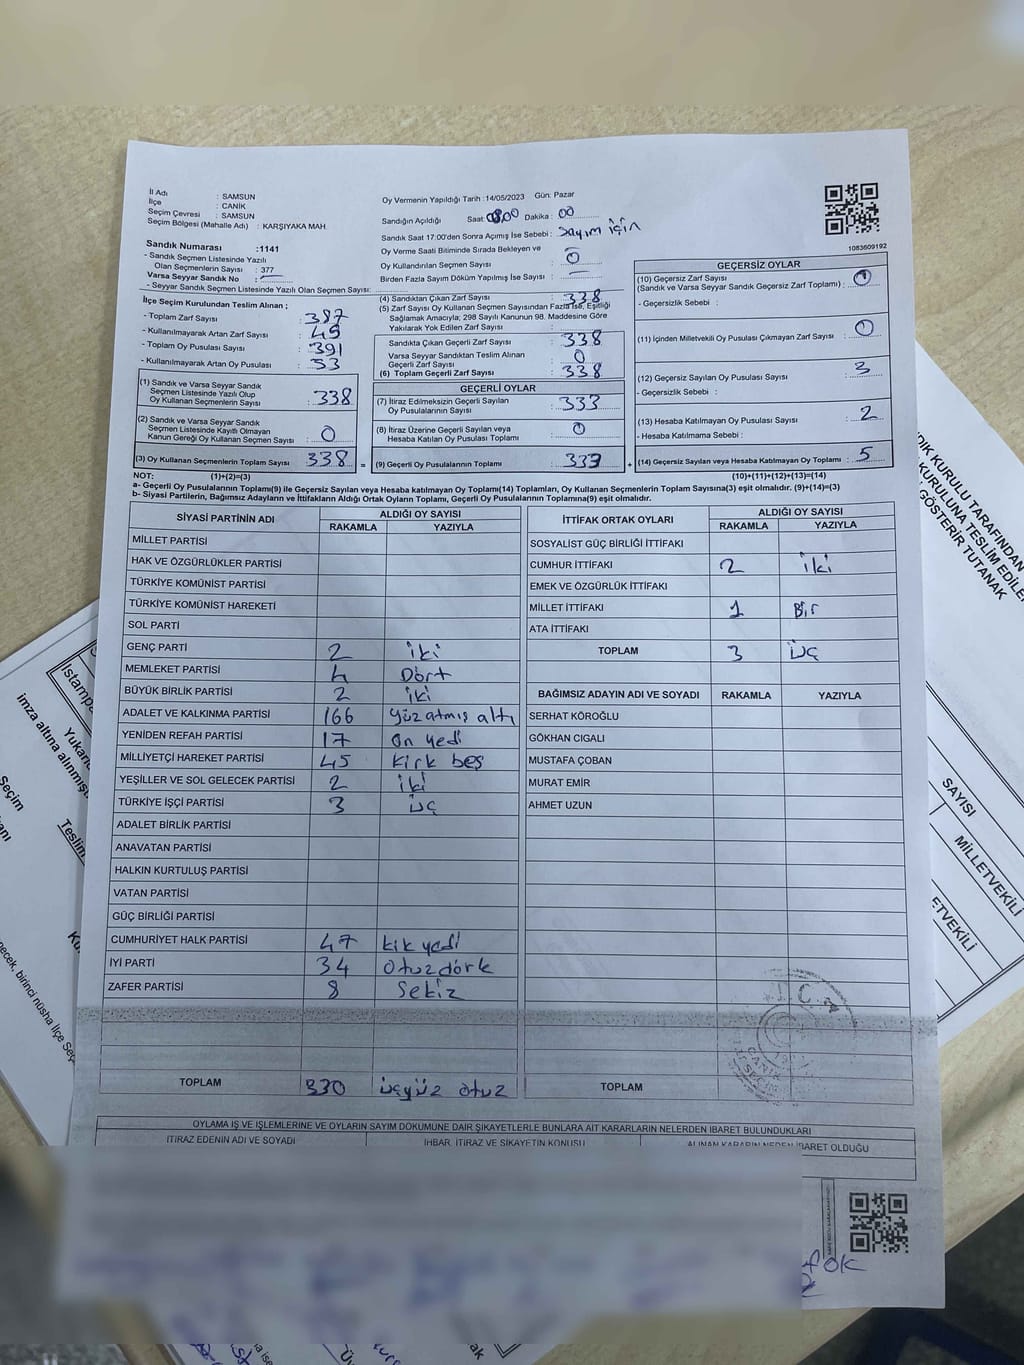 İl Adı : SAMSUN
İlçe : CANİK
Seçim Çevresi : SAMSUN
Seçim Bölgesi (Mahalle Adı) : KARŞIYAKA MAH.
Sandık Numarası :1141
- Sandık Seçmen Listesinde Yazılı
Olan Seçmenlerin Sayısı : 377
Varsa Seyyar Sandık No :
- Seyyar Sandık Seçmen Listesinde Yazılı Olan Seçmen Sayısı:
İlçe Seçim Kurulundan Teslim Alınan ;
- Toplam Zarf Sayısı : 387
- Kullanılmayarak Artan Zarf Sayısı : 49
- Toplam Oy Pusulası Sayısı : 391
- Kullanılmayarak Artan Oy Pusulası : 53
(1) Sandık ve Varsa Seyyar Sandık
Seçmen Listesinde Yazılı Olup
Oy Kullanan Seçmenlerin Sayısı : 338
(2) Sandık ve Varsa Seyyar Sandık
Seçmen Listesinde Kayıtlı Olmayan
Kanun Gereği Oy Kullanan Seçmen Sayısı : 0
(3) Oy Kullanan Seçmenlerin Toplam Sayısı : 338 =
Oy Vermenin Yapıldığı Tarih :14/05/2023 Gün: Pazar
Sandığın Açıldığı Saat: 08:00 Dakika : 00
Sandık Saat 17:00'den Sonra Açımış İse Sebebi : Sayım için
Oy Verme Saati Bitiminde Sırada Bekleyen ve
Oy Kullandırılan Seçmen Sayısı : 0
Birden Fazla Sayım Döküm Yapılmış İse Sayısı :
(4) Sandıktan Çıkan Zarf Sayısı : 338
(5) Zarf Sayısı Oy Kullanan Seçmen Sayısından Fazla İse, Eşitliği
Sağlamak Amacıyla; 298 Sayılı Kanunun 98. Maddesine Göre
Yakılarak Yok Edilen Zarf Sayısı :
Sandıkta Çıkan Geçerli Zarf Sayısı : 338
Varsa Seyyar Sandıktan Teslim Alınan
Geçerli Zarf Sayısı : 0
(6) Toplam Geçerli Zarf Sayısı : 338
GEÇERLİ OYLAR
(7) İtiraz Edilmeksizin Geçerli Sayılan
Oy Pusulalarının Sayısı : 333
(8) İtiraz Üzerine Geçerli Sayılan veya
Hesaba Katılan Oy Pusulası Toplamı : 0
(9) Geçerli Oy Pusulalarının Toplamı : 333 +
1083609192
GEÇERSİZ OYLAR
(10) Geçersiz Zarf Sayısı
(Sandık ve Varsa Seyyar Sandık Geçersiz Zarf Toplamı) : 0
- Geçersizlik Sebebi :
(11) İçinden Milletvekili Oy Pusulası Çıkmayan Zarf Sayısı : 0
(12) Geçersiz Sayılan Oy Pusulası Sayısı : 3
- Geçersizlik Sebebi :
(13) Hesaba Katılmayan Oy Pusulası Sayısı : 2
- Hesaba Katılmama Sebebi :
(14) Geçersiz Sayılan veya Hesaba Katılmayan Oy Toplamı : 5
NOT: (1)+(2)=(3) (10)+(11)+(12)+(13)=(14)
a- Geçerli Oy Pusulalarının Toplamı(9) ile Geçersiz Sayılan veya Hesaba katılmayan Oy Toplamı(14) Toplamları, Oy Kullanan Seçmenlerin Toplam Sayısına(3) eşit olmalıdır. (9)+(14)=(3)
b- Siyasi Partilerin, Bağımsız Adayların ve İttifakların Aldığı Ortak Oyların Toplamı, Geçerli Oy Pusulalarının Toplamına(9) eşit olmalıdır.
SİYASİ PARTİNİN ADI ALDIĞI OY SAYISI
RAKAMLA YAZIYLA
MİLLET PARTİSİ
HAK VE ÖZGÜRLÜKLER PARTİSİ
TÜRKİYE KOMÜNİST PARTİSİ
TÜRKİYE KOMÜNİST HAREKETİ
SOL PARTİ
GENÇ PARTİ 2 iki
MEMLEKET PARTİSİ 4 Dört
BÜYÜK BİRLİK PARTİSİ 2 iki
ADALET VE KALKINMA PARTİSİ 166 yüz atmış altı
YENİDEN REFAH PARTİSİ 17 on yedi
MİLLİYETÇİ HAREKET PARTİSİ 45 Kırk beş
YEŞİLLER VE SOL GELECEK PARTİSİ 2 iki
TÜRKİYE İŞÇİ PARTİSİ 3 üç
ADALET BİRLİK PARTİSİ
ANAVATAN PARTİSİ
HALKIN KURTULUŞ PARTİSİ
VATAN PARTİSİ
GÜÇ BİRLİĞİ PARTİSİ
CUMHURİYET HALK PARTİSİ 47 kık yedi
İYİ PARTİ 34 otuz dörk
ZAFER PARTİSİ 8 Sekiz
TOPLAM 330 üçyüz otuz
İTTİFAK ORTAK OYLARI ALDIĞI OY SAYISI
RAKAMLA YAZIYLA
SOSYALİST GÜÇ BİRLİĞİ İTTİFAKI
CUMHUR İTTİFAKI 2 iki
EMEK VE ÖZGÜRLÜK İTTİFAKI
MİLLET İTTİFAKI 1 Bir
ATA İTTİFAKI
TOPLAM 3 üç
BAĞIMSIZ ADAYIN ADI VE SOYADI RAKAMLA YAZIYLA
SERHAT KÖROĞLU
GÖKHAN CIGALI
MUSTAFA ÇOBAN
MURAT EMİR
AHMET UZUN
T.C.
CANİK
TOPLAM
OYLAMA İŞ VE İŞLEMLERİNE VE OYLARIN SAYIM DÖKÜMÜNE DAİR ŞİKAYETLERLE BUNLARA AİT KARARLARIN NELERDEN İBARET BULUNDUKLARI
İTİRAZ EDENİN ADI VE SOYADI İHBAR, İTİRAZ VE ŞİKAYETİN KONUSU ALINAN KARARIN NEDEN İBARET OLDUĞU
DIK KURULU TARAFINDAN
KURULUNA TESLİM EDİLE
GÖSTERİR TUTANAK
SAYISI
MİLLETVEKİLİ
ETVEKİLİ
İstamp
Yukarı
imza altına alınmış
Seçim
Teslim
necek, birinci nüsha İlçe Seç